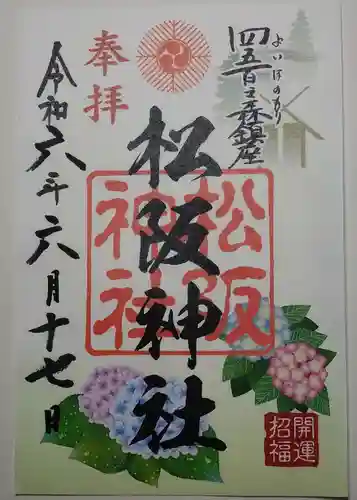 よいほのもり
四五百之森鎮座
松阪神社
松阪
神社
奉拝
令和六年六月十七日
開運
招福